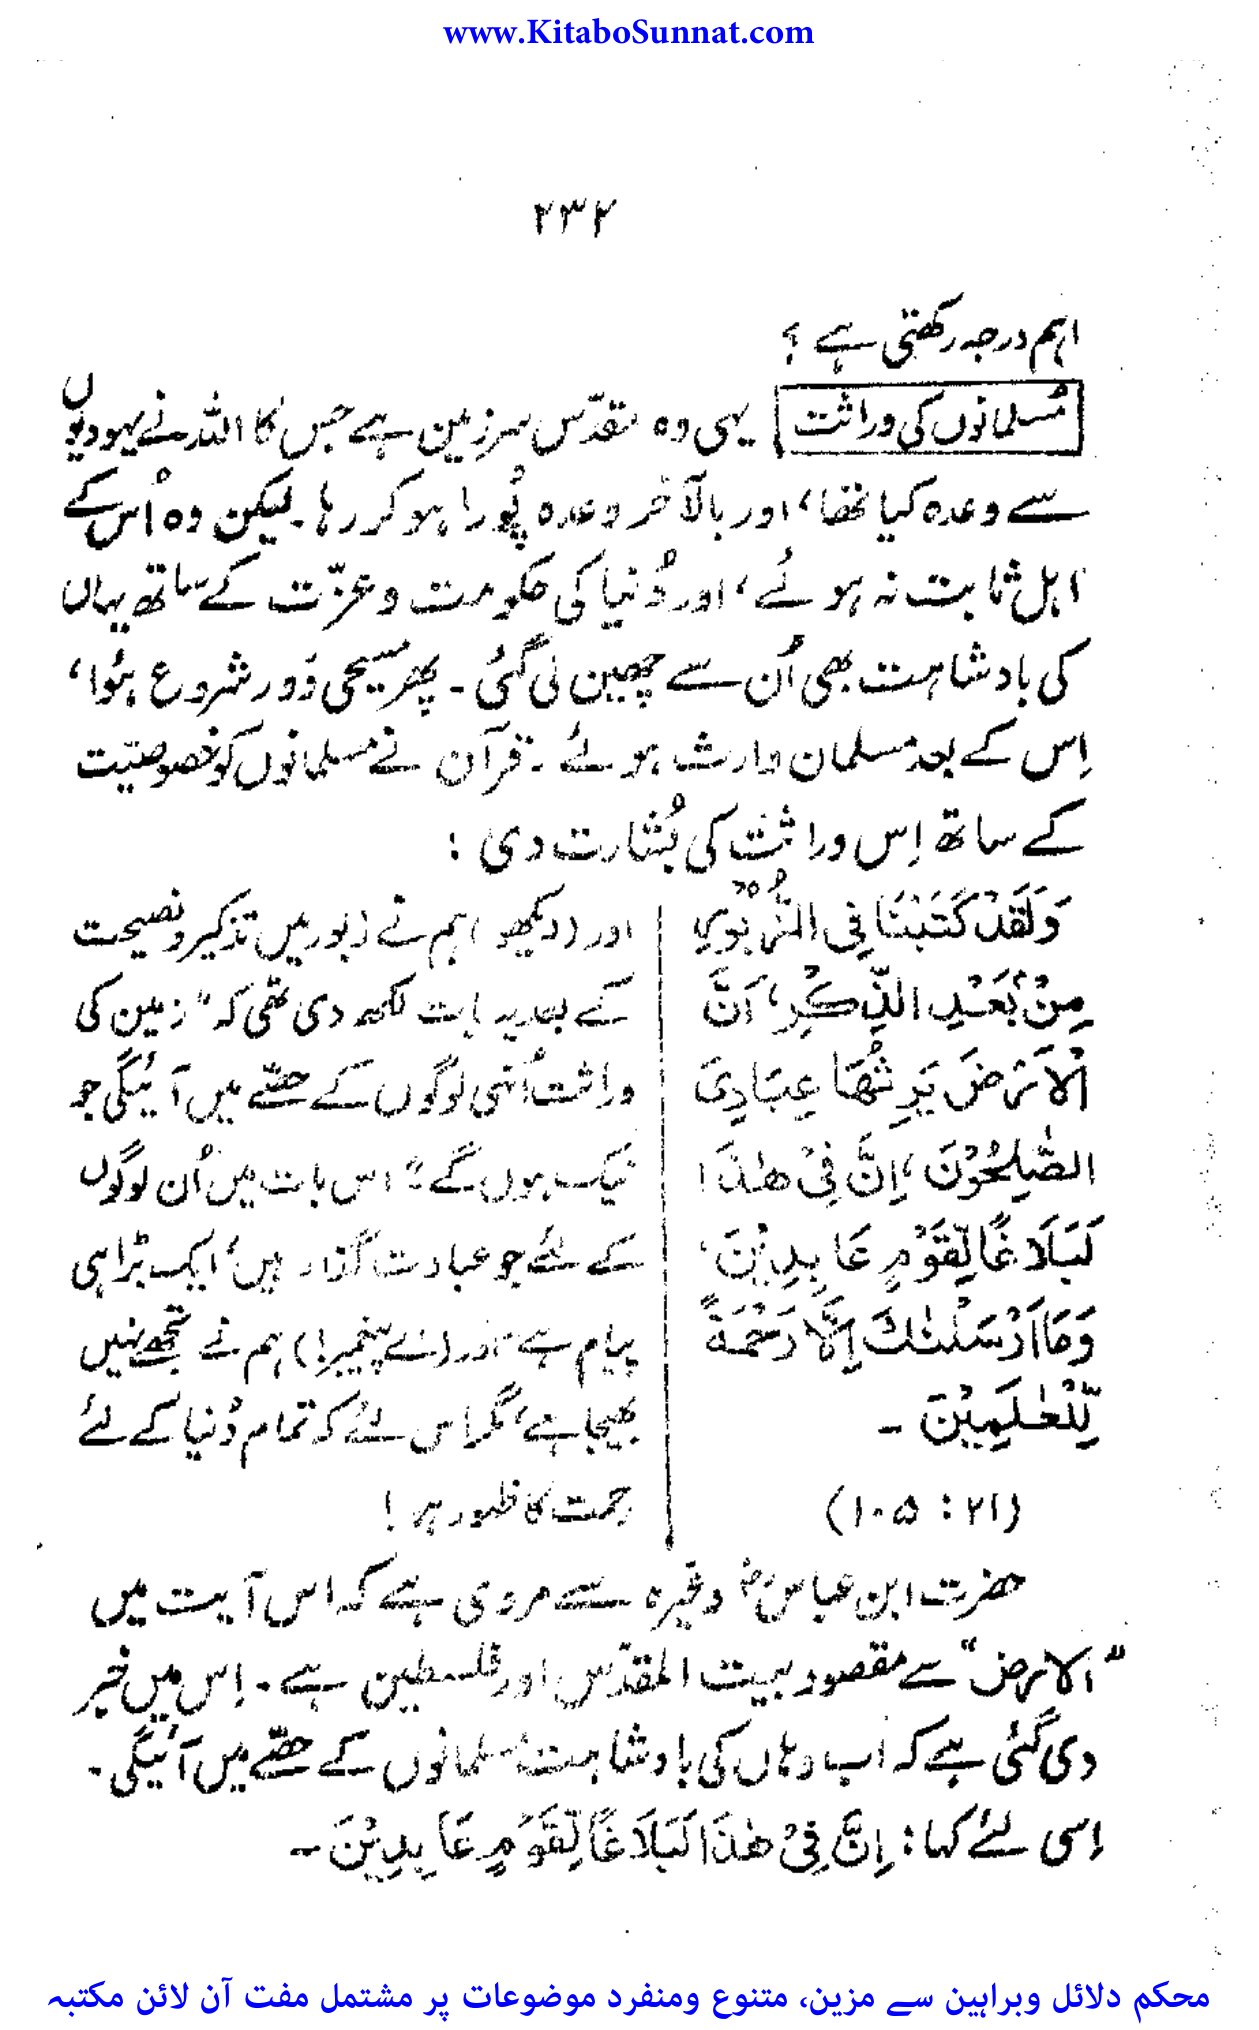 www.KitaboSunnat.com
۲۳۲
اہم درجہ رکھتی ہے ؟
مُسلمانوں کی وراثت یہی وہ مقدّس سرزمین ہے جس کا اللہ نے یہودیوں
سے وعدہ کیا تھا، اور بالآخر وعدہ پُورا ہو کر رہا۔ لیکن وہ اُس کے
اہل ثابت نہ ہوئے، اور دُنیا کی حکومت و عزّت کے ساتھ یہاں
کی بادشاہت بھی اُن سے چھین لی گئی۔ پھر مسیحی دَور شروع ہُوا،
اِس کے بعد مسلمان وارث ہوئے۔ قرآن نے مسلمانوں کو خصوصیّت
کے ساتھ اِس وراثت کی بُشارت دی :
وَلَقَدْ كَتَبْنَا فِی الزَّبُوْرِ
مِنْۢ بَعْدِ الذِّكْرِ، اَنَّ
الْاَرْضَ یَرِثُهَا عِبَادِیَ
الصّٰلِحُوْنَ، اِنَّ فِیْ هٰذَا
لَبَلَاغًا لِّقَوْمٍ عَابِدِیْنَ،
وَمَا اَرْسَلْنٰكَ اِلَّا رَحْمَةً
لِّلْعٰلَمِیْنَ ۔
(۲۱ : ۱۰۵)
اور (دیکھو) ہم نے زبور میں تذکیر و نصیحت
کے بعد یہ بات لکھ دی تھی کہ "زمین کی
وراثت اُنہی لوگوں کے حصّے میں آئیگی جو
نیک ہوں گے" اس بات میں اُن لوگوں
کے لئے جو عبادت گذار ہیں، ایک بڑا ہی
پیام ہے اور (اے پیغمبر!) ہم نے تجھے نہیں
بھیجا ہے، مگر اس لئے کہ تمام دُنیا کے لئے
رحمت کا ظہور ہو !
حضرت ابن عباسؓ وغیرہ سے مروی ہے کہ اس آیت میں
"الارض" سے مقصود بیت المقدّس اور فلسطین ہے۔ اِس میں خبر
دی گئی ہے کہ اب وہاں کی بادشاہت مُسلمانوں کے حصّے میں آئیگی۔
اِسی لئے کہا : اِنَّ فِیْ هٰذَا لَبَلَاغًا لِّقَوْمٍ عَابِدِیْنَ ۔
محکم دلائل وبراہین سے مزین، متنوع ومنفرد موضوعات پر مشتمل مفت آن لائن مکتبہ